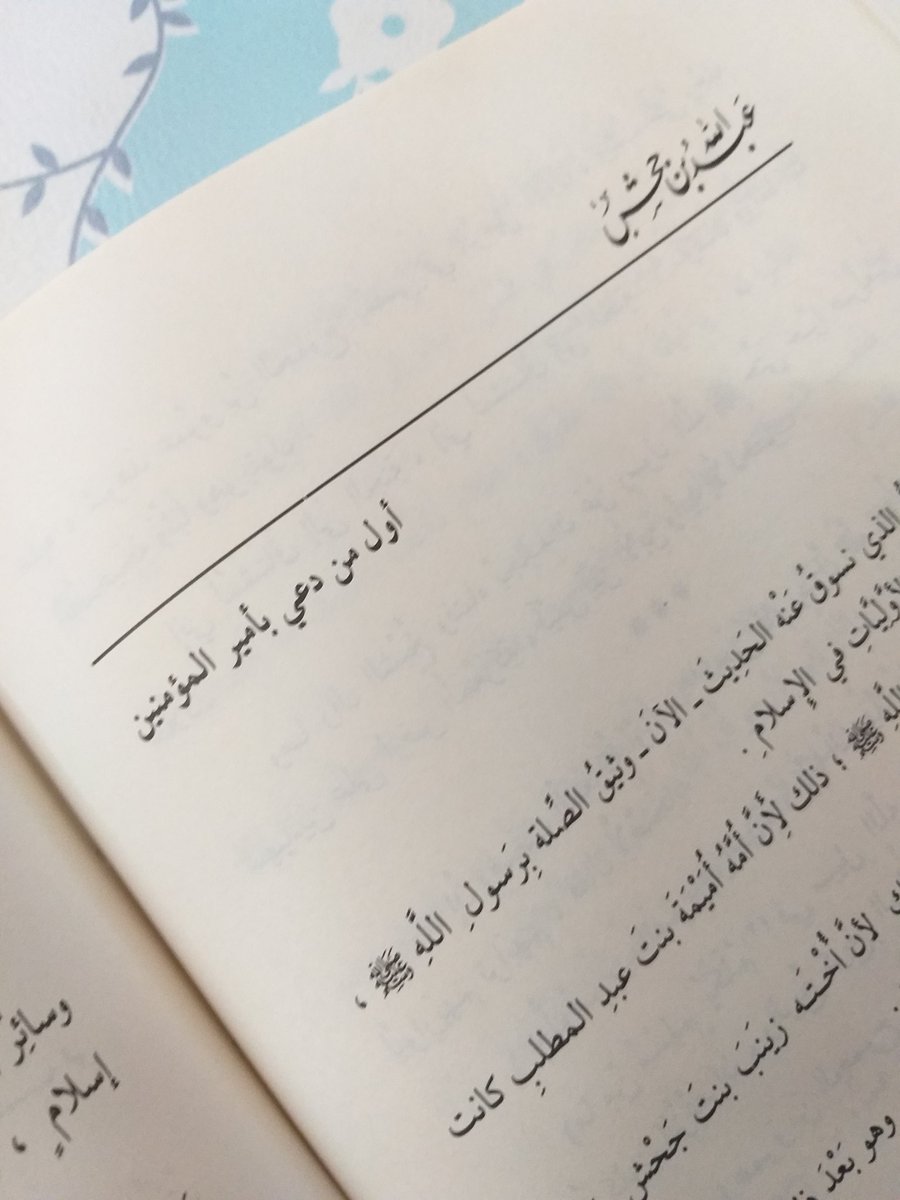 عَبدُ اللّه بْن جَحْشٍ
أول من دعي بأمير المؤمنين
الذي نسوقُ عَنْه الحَدِيثَ - الآنَ - وثيقُ الصِّلة بِرَسولِ اللَّهِ ﷺ ،
الأوَّليَّاتِ في الإسلامِ .
ﷺ ؛ ذلك لأَِنَّ أُمَّهُ أُمَيْمَةَ بنتَ عبدِ المطلبِ كانت
لأنَّ أُخْتَـه زينبَ بنتَ جَحْشٍ
وهو بَعْدَ
وسائِرِ
إسلامٍ ،